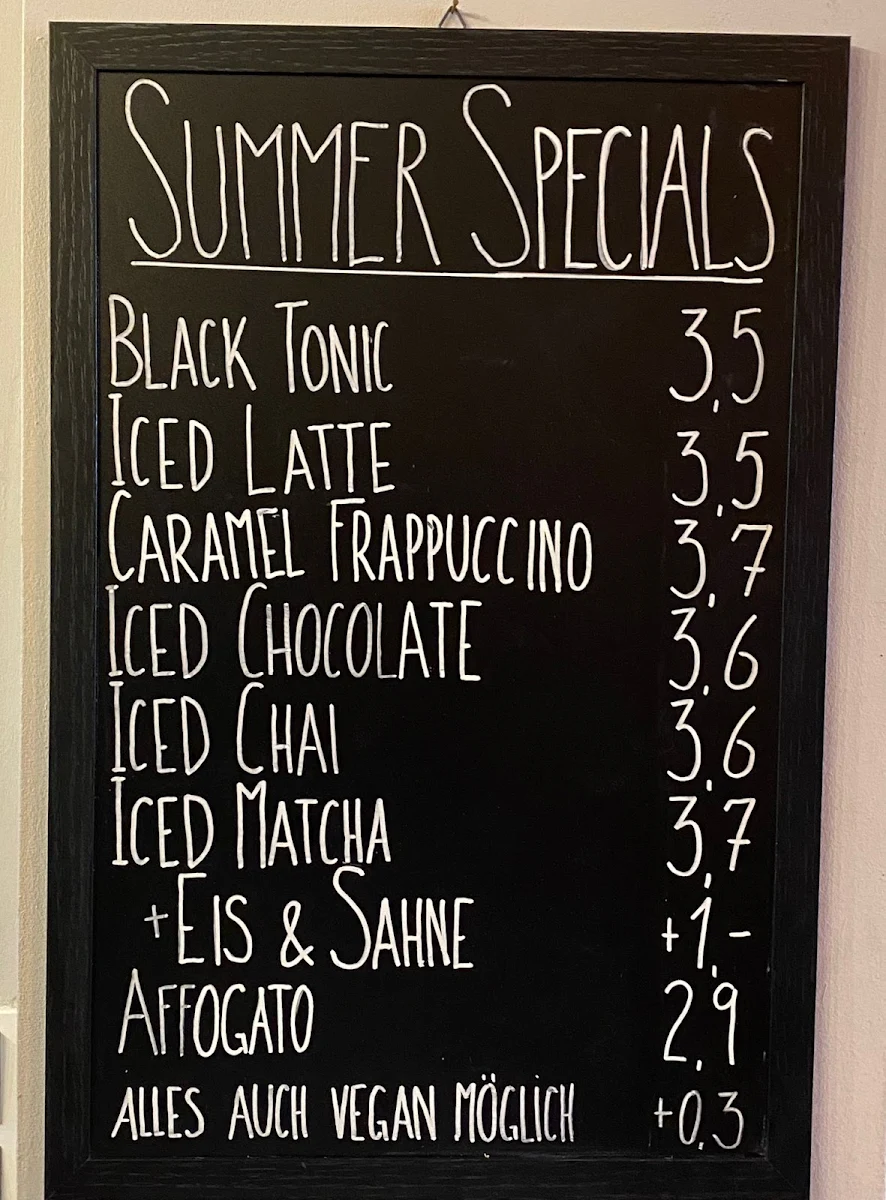 SUMMER SPECIALS
BLACK TONIC 3,5
ICED LATTE 3,5
CARAMEL FRAPPUCCINO 3,7
ICED CHOCOLATE 3,6
ICED CHAI 3,6
ICED MATCHA 3,7
+ EIS & SAHNE +1,-
AFFOGATO 2,9
ALLES AUCH VEGAN MÖGLICH +0,3